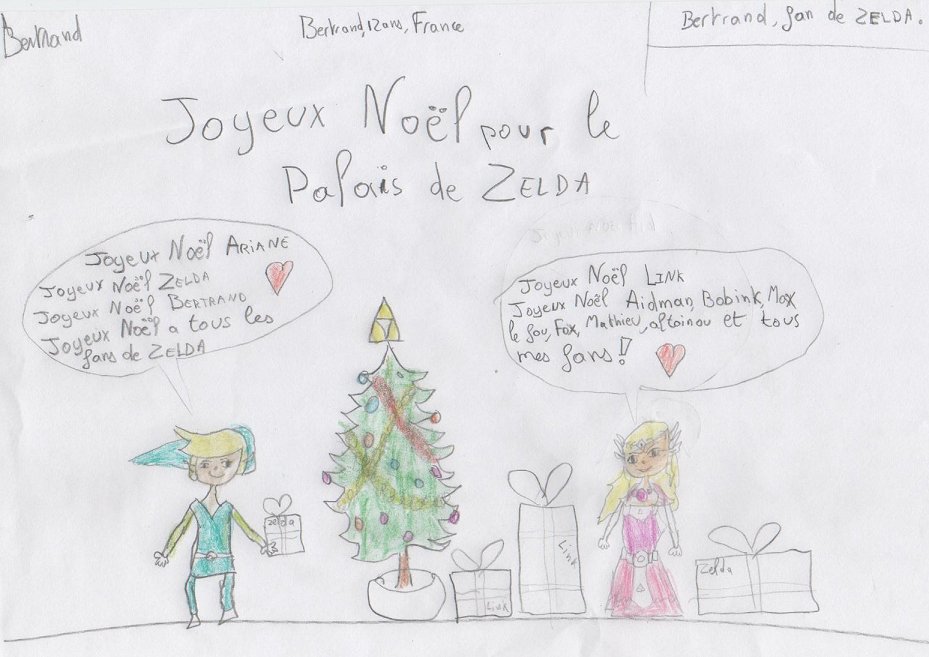 Bertrand
Bertrand, 12 ans, France
Bertrand, fan de ZELDA.
Joyeux Noël pour le
Palais de ZELDA
Joyeux Noël ARIANE
Joyeux Noël ZELDA
Joyeux Noël BERTRAND
Joyeux Noël a tous les
fans de ZELDA
Joyeux Noël LINK
Joyeux Noël Aidman, Bobink, Max
le fou, Fox, Mathieu, altoinou et tous
mes fans !
zelda
Link
Link
Zelda